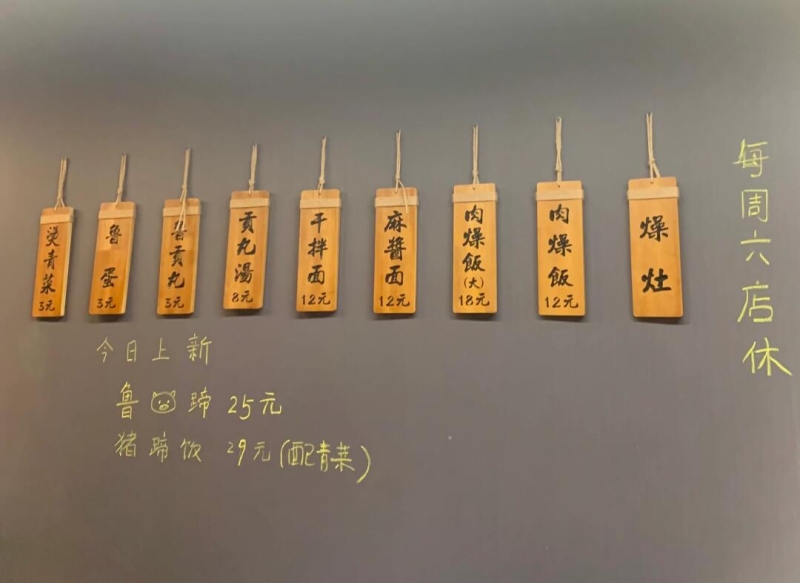 每周六店休
燥灶
肉燥飯
12元
肉燥飯(大)
18元
麻醬面
12元
干拌面
12元
貢丸湯
8元
魯貢丸
3元
魯蛋
3元
燙青菜
3元
今日上新
鲁蹄 25元
猪蹄饭 29元(配青菜)